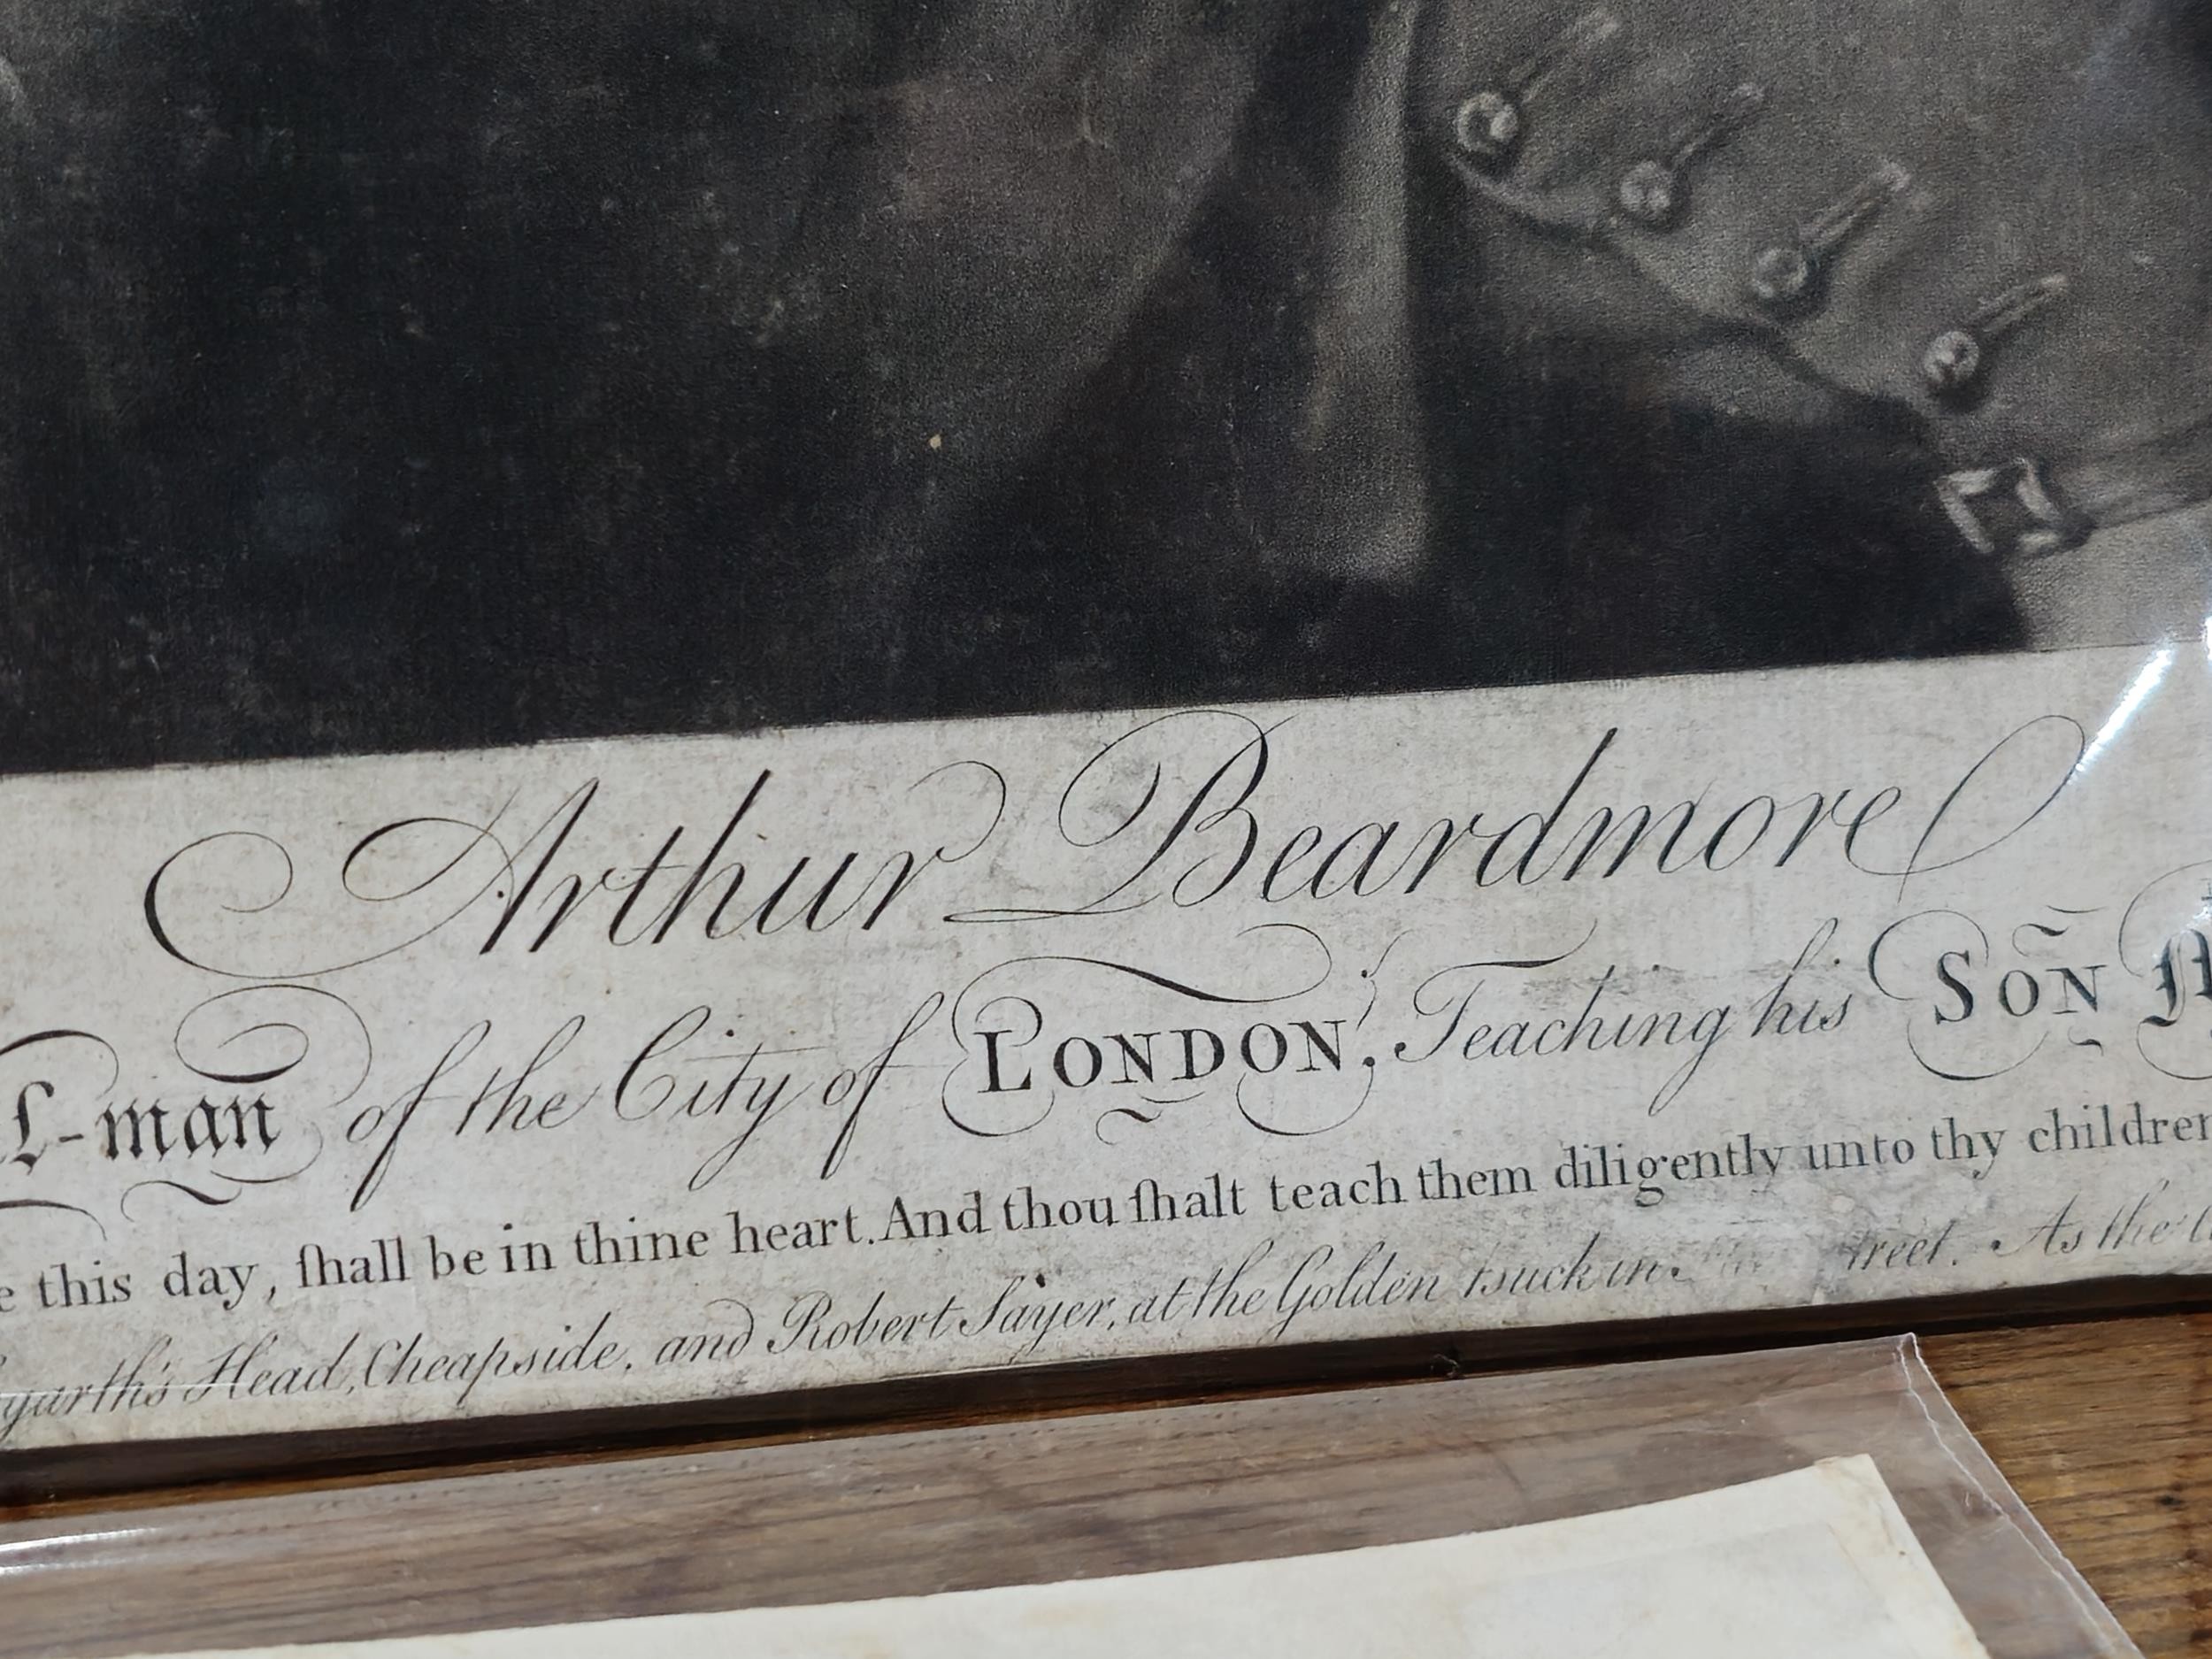 Arthur Beardmore
-man of the City of LONDON, Teaching his SON
this day, ſhall be in thine heart. And thou ſhalt teach them diligently unto thy children
Head, Cheapside, and Robert Sayer, at the Golden Buck in treet. As the